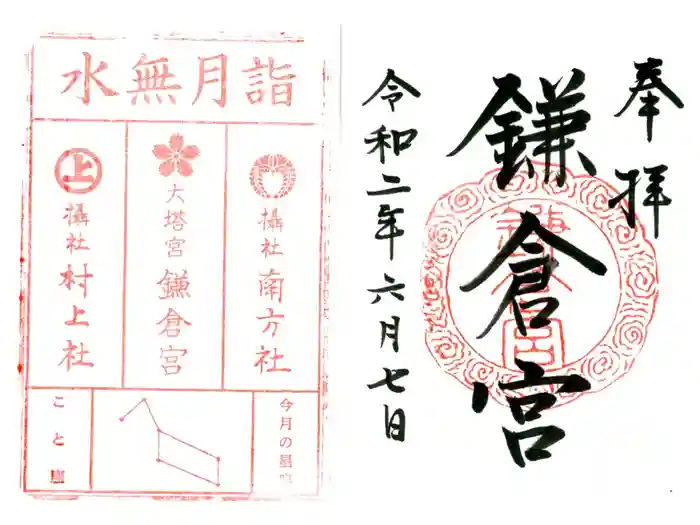 奉拝
鎌倉宮
令和二年六月七日
水無月詣
攝社
南方社
大塔宮
鎌倉宮
上
攝社
村上社
今月の星座
こと座